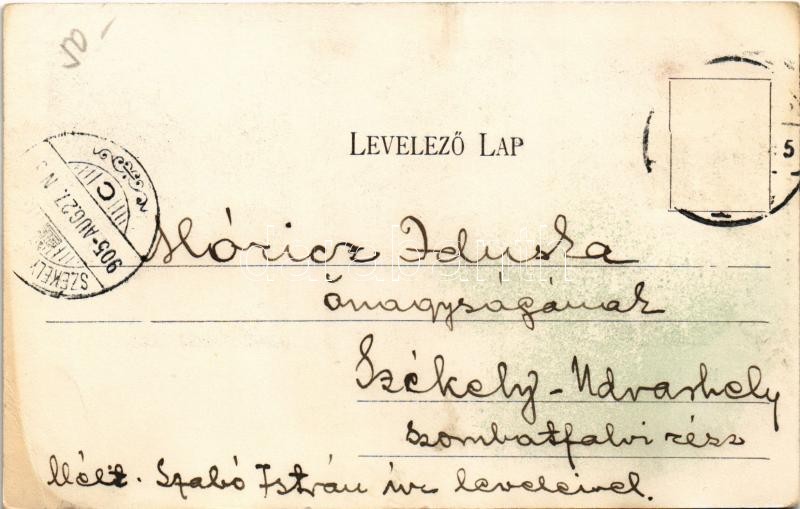 LEVELEZŐ LAP
5
SZÉKELY
905·AUG.27. N
C
Móricz Iduska
őnagyságának
Székely-Udvarhely
szombatfalvi rész
Mélt. Szabó István úr leveleivel.